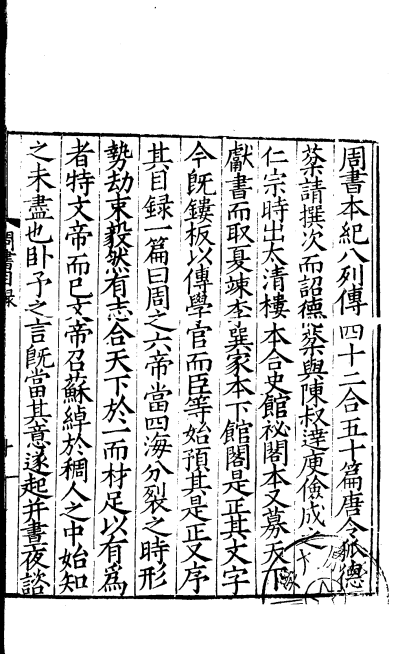 周書本紀八列傳四十二合五十篇唐令狐德
棻請撰次而詔德棻與陳叔達庾儉成之
仁宗時出太清樓本合史館祕閣本又募天下
獻書而取夏竦李巽家本下館閣是正其文字
今旣鏤板以傳學官而臣等始預其是正又序
其目録一篇曰周之六帝當四海分裂之時形
勢劫束毅然有志合天下於一而材足以有爲
者特文帝而已文帝召蘇綽於稠人之中始知
之未盡也卧予之言旣當其意遂起幷晝夜諮
周書目録